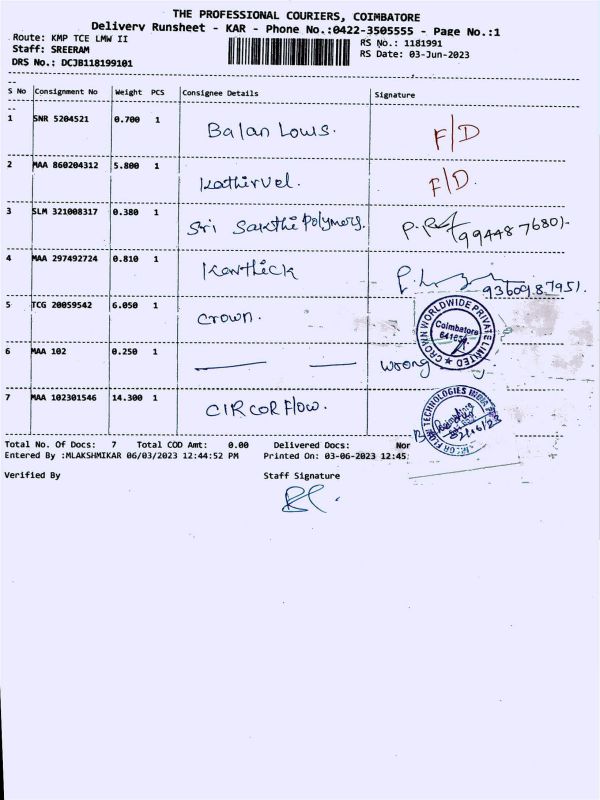 THE PROFESSIONAL COURIERS, COIMBATORE
Delivery Runsheet - KAR - Phone No.:0422-3505555 - Page No.:1
Route: KMP TCE LMW II
RS No.: 1181991
Staff: SREERAM
RS Date: 03-Jun-2023
DRS No.: DCJB118199101
S No Consignment No Weight PCS Consignee Details Signature
1 SNR 5204521 0.700 1 Balan Lows. F/D
2 MAA 860204312 5.800 1 Kathirvel. F/D.
3 SLM 321008317 0.380 1 Sri Sakthi Polymers. 9944876801.
4 MAA 297492724 0.810 1 Karthick 9360987951.
5 TCG 20059542 6.050 1 Crown.
CROWN WORLDWIDE PRIVATE LIMITED
Coimbatore
6 MAA 102 0.250 1 wrong
7 MAA 102301546 14.300 1 CIRCORFLOW.
TECHNOLOGIES INDIA
Total No. Of Docs: 7 Total COD Amt: 0.00 Delivered Docs: Nor
Entered By :MLAKSHMIKAR 06/03/2023 12:44:52 PM Printed On: 03-06-2023 12:45:
Verified By Staff Signature